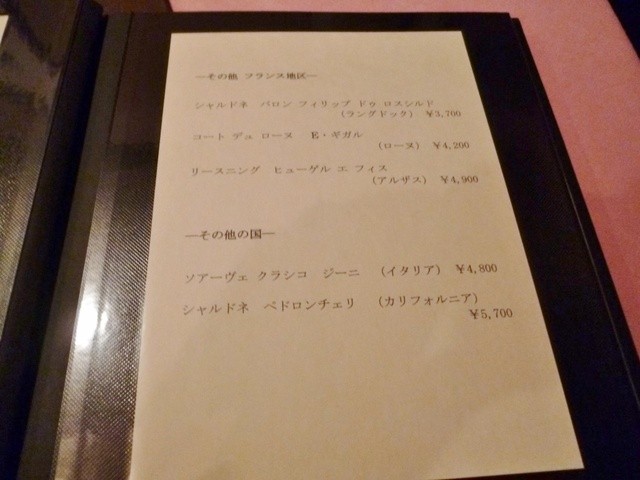 ―その他 フランス地区―
シャルドネ　バロン フィリップ ドゥ ロスシルド
(ラングドック)　￥3,700
コート デュ ローヌ　E・ギガル
(ローヌ)　￥4,200
リースニング　ヒューゲル エ フィス
(アルザス)　￥4,900
―その他の国―
ソアーヴェ クラシコ　ジーニ　(イタリア)　￥4,800
シャルドネ　ペドロンチェリ　(カリフォルニア)
￥5,700